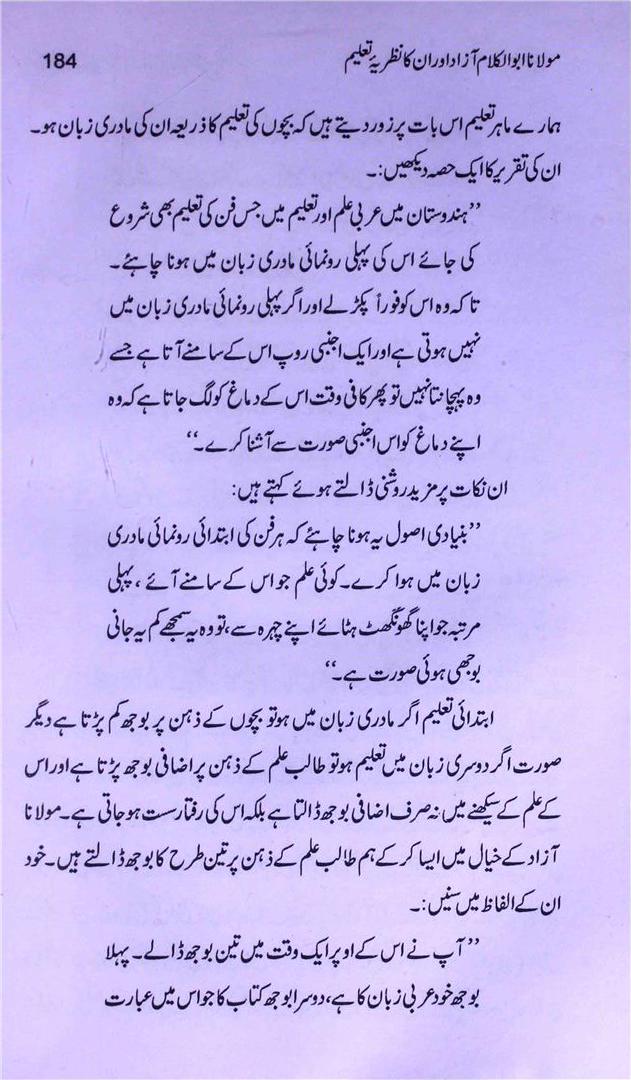 مولانا ابوالکلام آزاد اور ان کا نظریۂ تعلیم 184
ہمارے ماہر تعلیم اس بات پر زور دیتے ہیں کہ بچوں کی تعلیم کا ذریعہ ان کی مادری زبان ہو۔
ان کی تقریر کا ایک حصہ دیکھیں:۔
”ہندوستان میں عربی علم اور تعلیم میں جس فن کی تعلیم بھی شروع
کی جائے اس کی پہلی رونمائی مادری زبان میں ہونا چاہئے۔
تاکہ وہ اس کو فوراً پکڑ لے اور اگر پہلی رونمائی مادری زبان میں
نہیں ہوتی ہے اور ایک اجنبی روپ اس کے سامنے آتا ہے جسے
وہ پہچانتا نہیں تو پھر کافی وقت اس کے دماغ کو لگ جاتا ہے کہ وہ
اپنے دماغ کو اس اجنبی صورت سے آشنا کرے۔“
ان نکات پر مزید روشنی ڈالتے ہوئے کہتے ہیں:
”بنیادی اصول یہ ہونا چاہئے کہ ہر فن کی ابتدائی رونمائی مادری
زبان میں ہوا کرے۔ کوئی علم جو اس کے سامنے آئے، پہلی
مرتبہ جو اپنا گھونگھٹ ہٹائے اپنے چہرہ سے، تو وہ یہ سمجھے کم یہ جانی
بوجھی ہوئی صورت ہے۔“
ابتدائی تعلیم اگر مادری زبان میں ہو تو بچوں کے ذہن پر بوجھ کم پڑتا ہے دیگر
صورت اگر دوسری زبان میں تعلیم ہو تو طالب علم کے ذہن پر اضافی بوجھ پڑتا ہے اور اس
کے علم کے سیکھنے میں نہ صرف اضافی بوجھ ڈالتا ہے بلکہ اس کی رفتار سست ہو جاتی ہے۔ مولانا
آزاد کے خیال میں ایسا کر کے ہم طالب علم کے ذہن پر تین طرح کا بوجھ ڈالتے ہیں۔ خود
ان کے الفاظ میں سنیں:۔
”آپ نے اس کے اوپر ایک وقت میں تین بوجھ ڈالے۔ پہلا
بوجھ خود عربی زبان کا ہے، دوسرا بوجھ کتاب کا جو اس میں عبارت